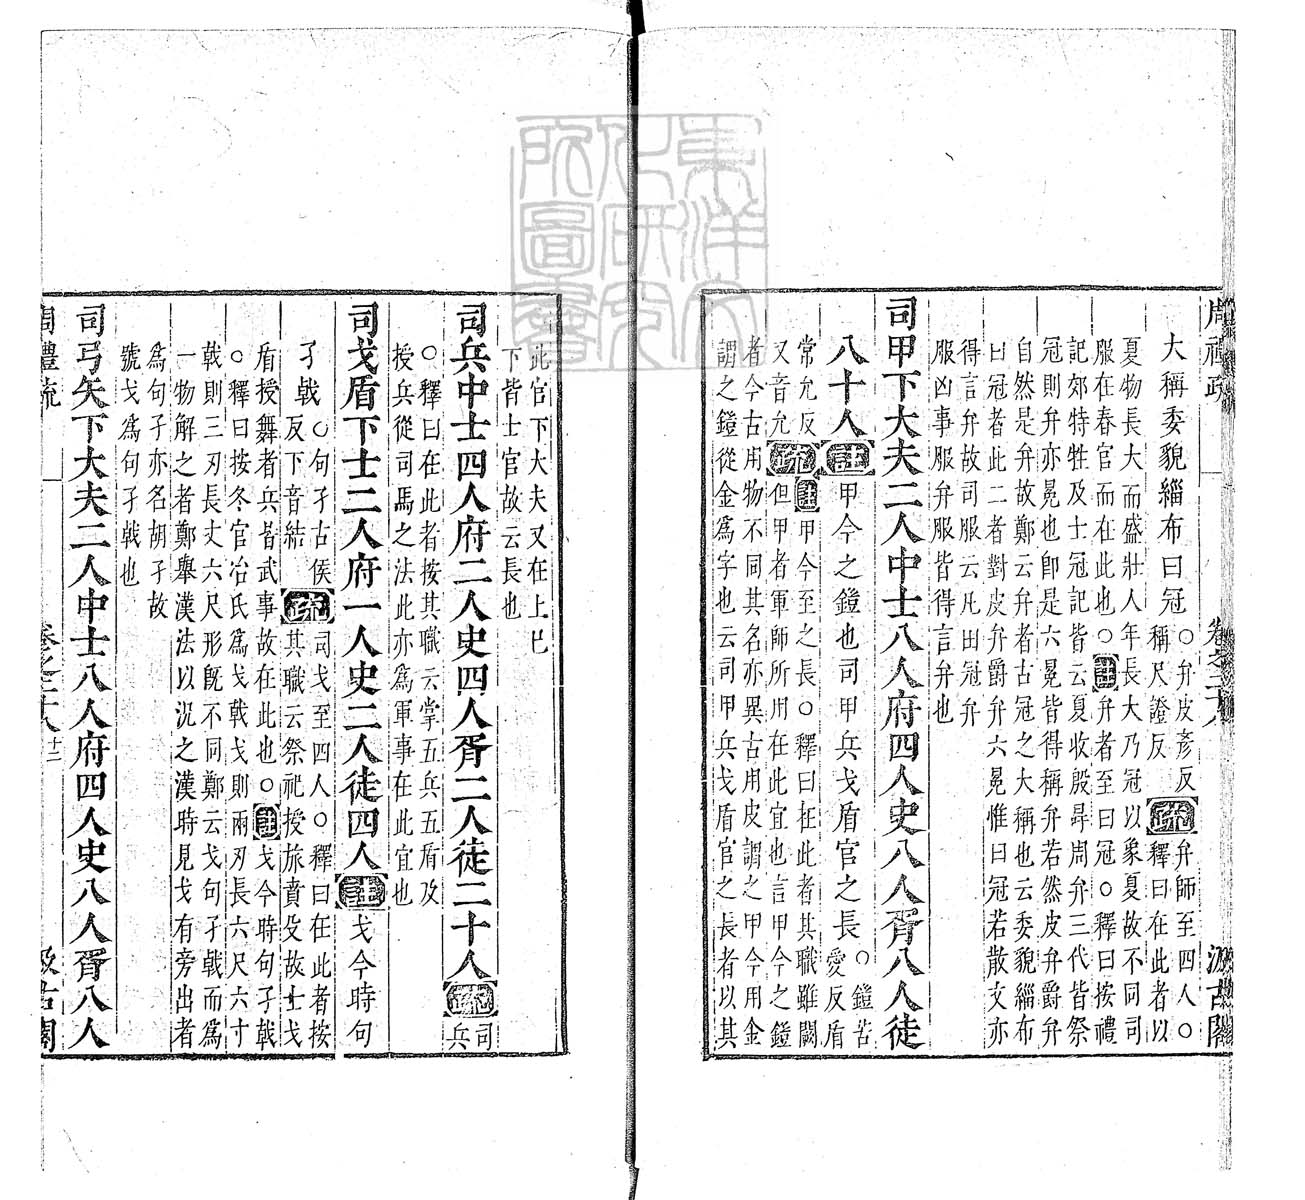 周禮疏 卷之二十八 汲古閣
大稱委貌緇布曰冠○弁皮彥反稱尺證反疏弁師至四人○釋曰在此者以
夏物長大而盛壯人年長大乃冠以象夏故不同司
服在春官而在此也○註弁者至曰冠○釋曰按禮
記郊特牲及士冠記皆云夏收殷冔周弁三代皆祭
冠則弁亦冕也卽是六冕皆得稱弁若然皮弁爵弁
自然是弁故鄭云弁者古冠之大稱也云委貌緇布
曰冠者此二者對皮弁爵弁六冕惟曰冠若散文亦
得言弁故司服云凡田冠弁
服凶事服弁服皆得言弁也
司甲下大夫二人中士八人府四人史八人胥八人徒
八十人註甲今之鎧也司甲兵戈盾官之長○鎧苦愛反盾
常允反又音允疏註甲今至之長○釋曰在此者其職雖闕
但甲者軍師所用在此宜也言甲今之鎧
者今古用物不同其名亦異古用皮謂之甲今用金
謂之鎧從金爲字也云司甲兵戈盾官之長者以其
此官下大夫又在上已
下皆士官故云長也
司兵中士四人府二人史四人胥二人徒二十人疏司兵
○釋曰在此者按其職云掌五兵五盾及
授兵從司馬之法此亦爲軍事在此宜也
司戈盾下士二人府一人史二人徒四人註戈今時句
孑戟○句孑古侯反下音結疏司戈至四人○釋曰在此者按
其職云祭祀授旅賁殳故士戈
盾授舞者兵皆武事故在此也○註戈今時句孑戟
○釋曰按冬官冶氏爲戈戟戈則兩刃長六尺六十
戟則三刃長丈六尺形旣不同鄭云戈句孑戟而爲
一物解之者鄭舉漢法以況之漢時見戈有旁出者
爲句孑亦名胡孑故
號戈爲句孑戟也
司弓矢下大夫二人中士八人府四人史八人胥八人
周禮疏 卷之二十八 十三 汲古閣
東洋文化研究所圖書